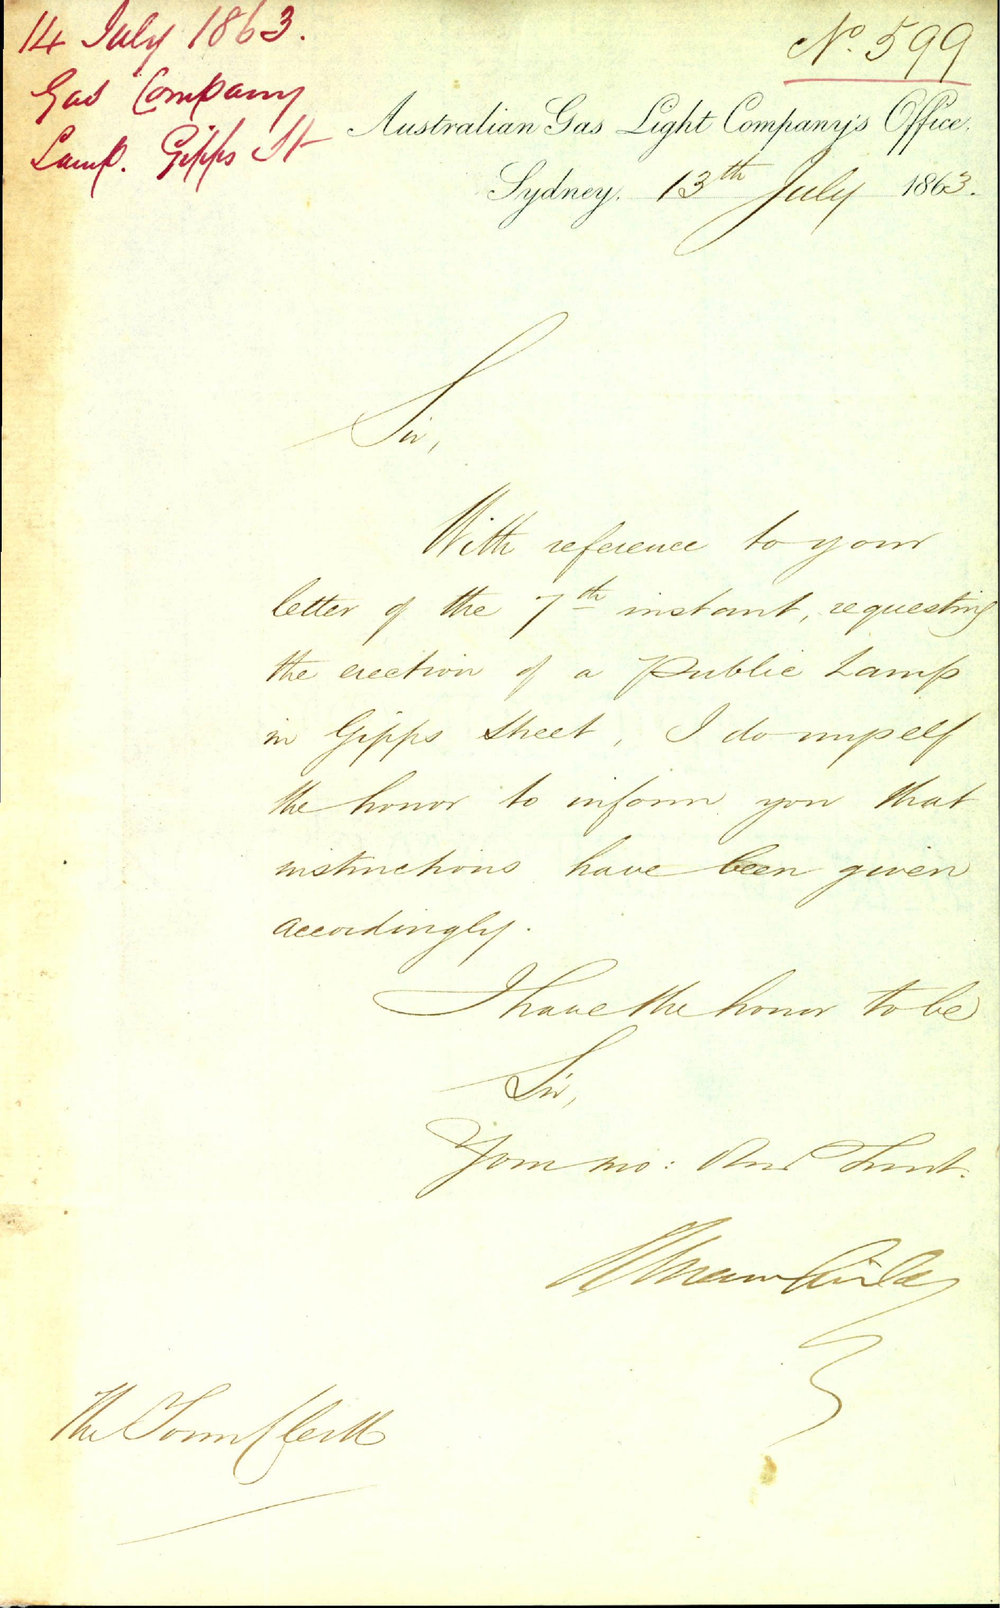 14 July 1863.
Gas Company
Lamp. Gipps St
No. 599
Australian Gas Light Company's Office.
Sydney. 13th July 1863.
Sir,
With reference to your
letter of the 7th instant, requesting
the erection of a Public Lamp
in Gipps Street, I do myself
the honor to inform you that
instructions have been given
accordingly.
I have the honor to be
Sir,
Your mo: Obed Servt.
The Town Clerk